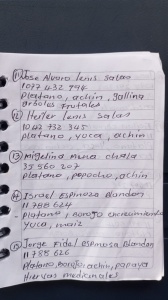 11) Jose Alvaro lenis salas
1077 432 994
Platano, achin, gallina
arboles frutales
12 Heiler lenis salas
1042 732 345
platano, yuca, achin
13) Angelina mena chala
35 560 207
platano, popocho, achin
14 Israel Espinosa Blandon
11 788 624
Platano, borojo encrecimiento
yuca, maiz
15 Jorge Fidel espinosa Blandon
11 788 626
Platano, borojo, achin, papaya
Hiervas medicinales